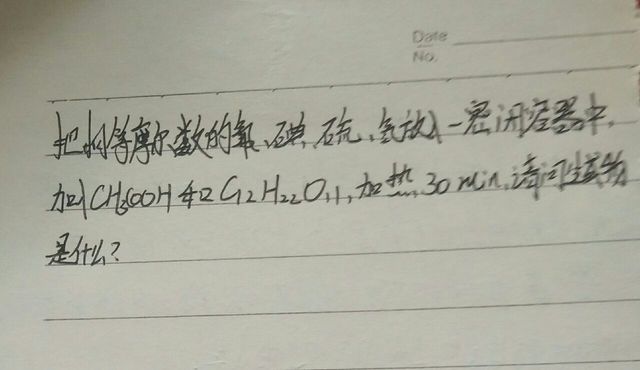 Date
No.
把相等摩尔数的氧、碘、硫、氢放入一密闭容器中,
加入CH3COOH和C12H22O11,加热30min,请问生成物
是什么?